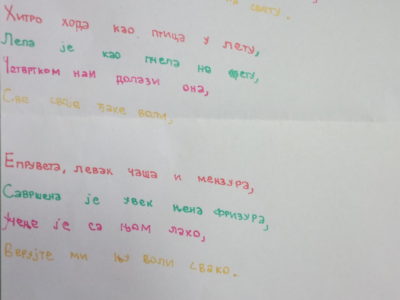 свету.
Хитро хода као птица у лету,
Лепа је као пчела на цвету,
Четвртком нам долази она,
Све своје ђаке воли,
Епрувета, левак чаша и мензура,
Савршена је увек њена фризура,
Учење је са њом лако,
Верујте ми њу воли свако.